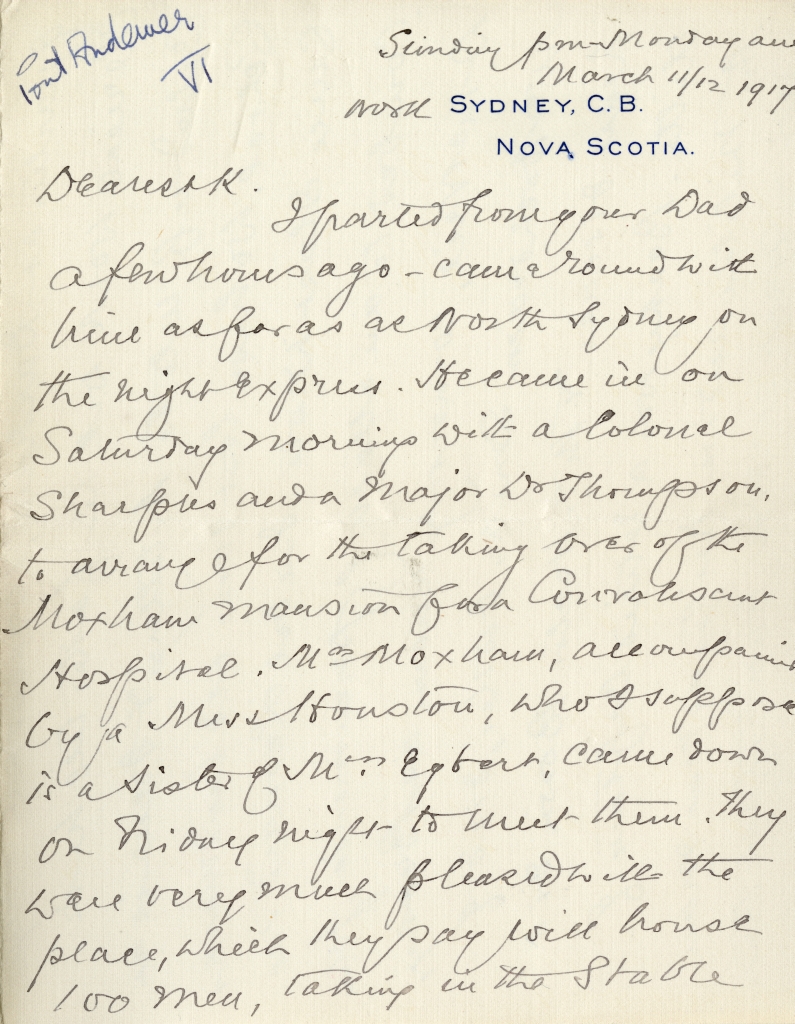 VI
Sunday pm - Monday am
March 11/12 1917
North SYDNEY, C. B.
NOVA SCOTIA.
Dearest K.
I parted from your Dad
a few hours ago - came round with
him as far as as North Sydney on
the night Express. He came in on
Saturday morning with a Colonel
Sharples and a Major Dr Thompson,
to arrange for the taking over of the
Moxham mansion for a Convalescent
Hospital. Mrs Moxham, accompanied
by a Miss Houston, who I suppose
is a sister of Mrs. Egbert, came down
on Friday night to meet them. They
were very much pleased with the
place, which they say will house
100 men, taking in the Stable